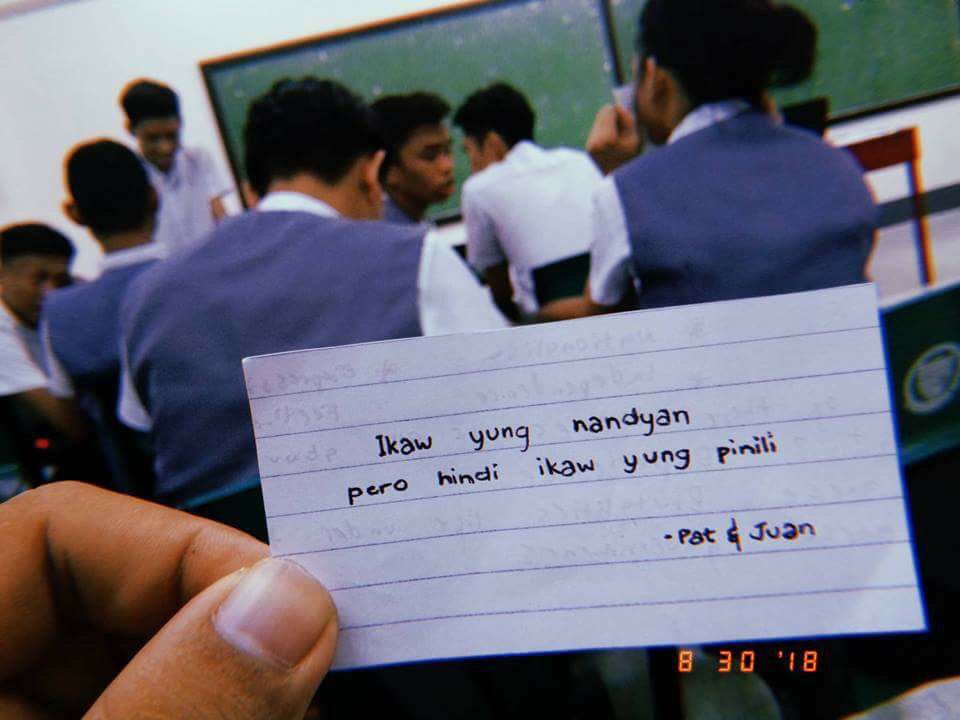 Ikaw yung nandyan
pero hindi ikaw yung pinili
-Pat & Juan
8 30 '18